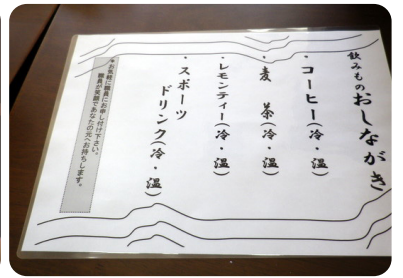 飲みものおしながき
・コーヒー(冷・温)
・麦 茶(冷・温)
・レモンティー(冷・温)
・スポーツ
ドリンク(冷・温)
＊お気軽に職員にお申し付け下さい。
職員が笑顔であなたの元へお持ちします。